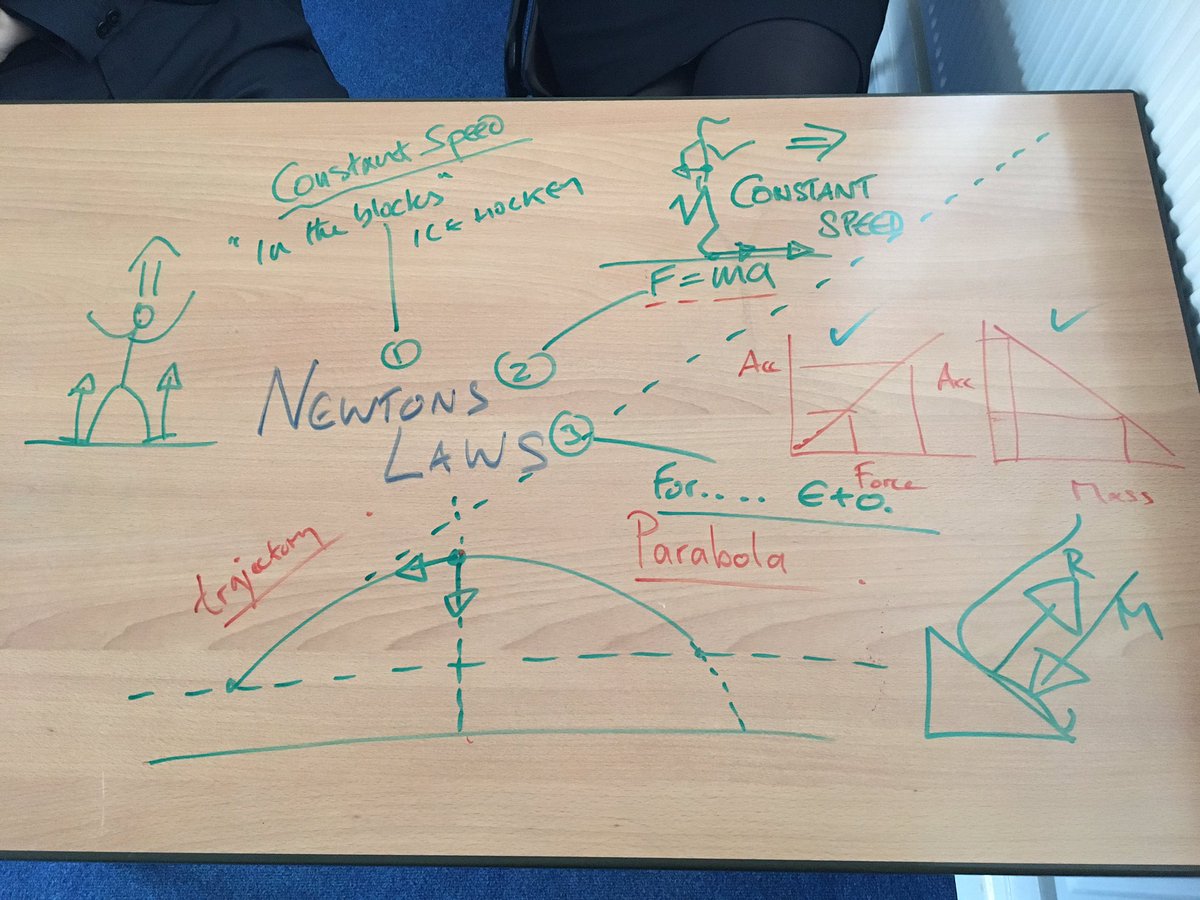 Constant Speed
"In the blocks"
ICE HOCKEY
CONSTANT
SPEED
F = ma
①
②
NEWTONS
LAWS
③
Acc
Force
Acc
Mass
For..... E+O.
Parabola
trajectory
R
M